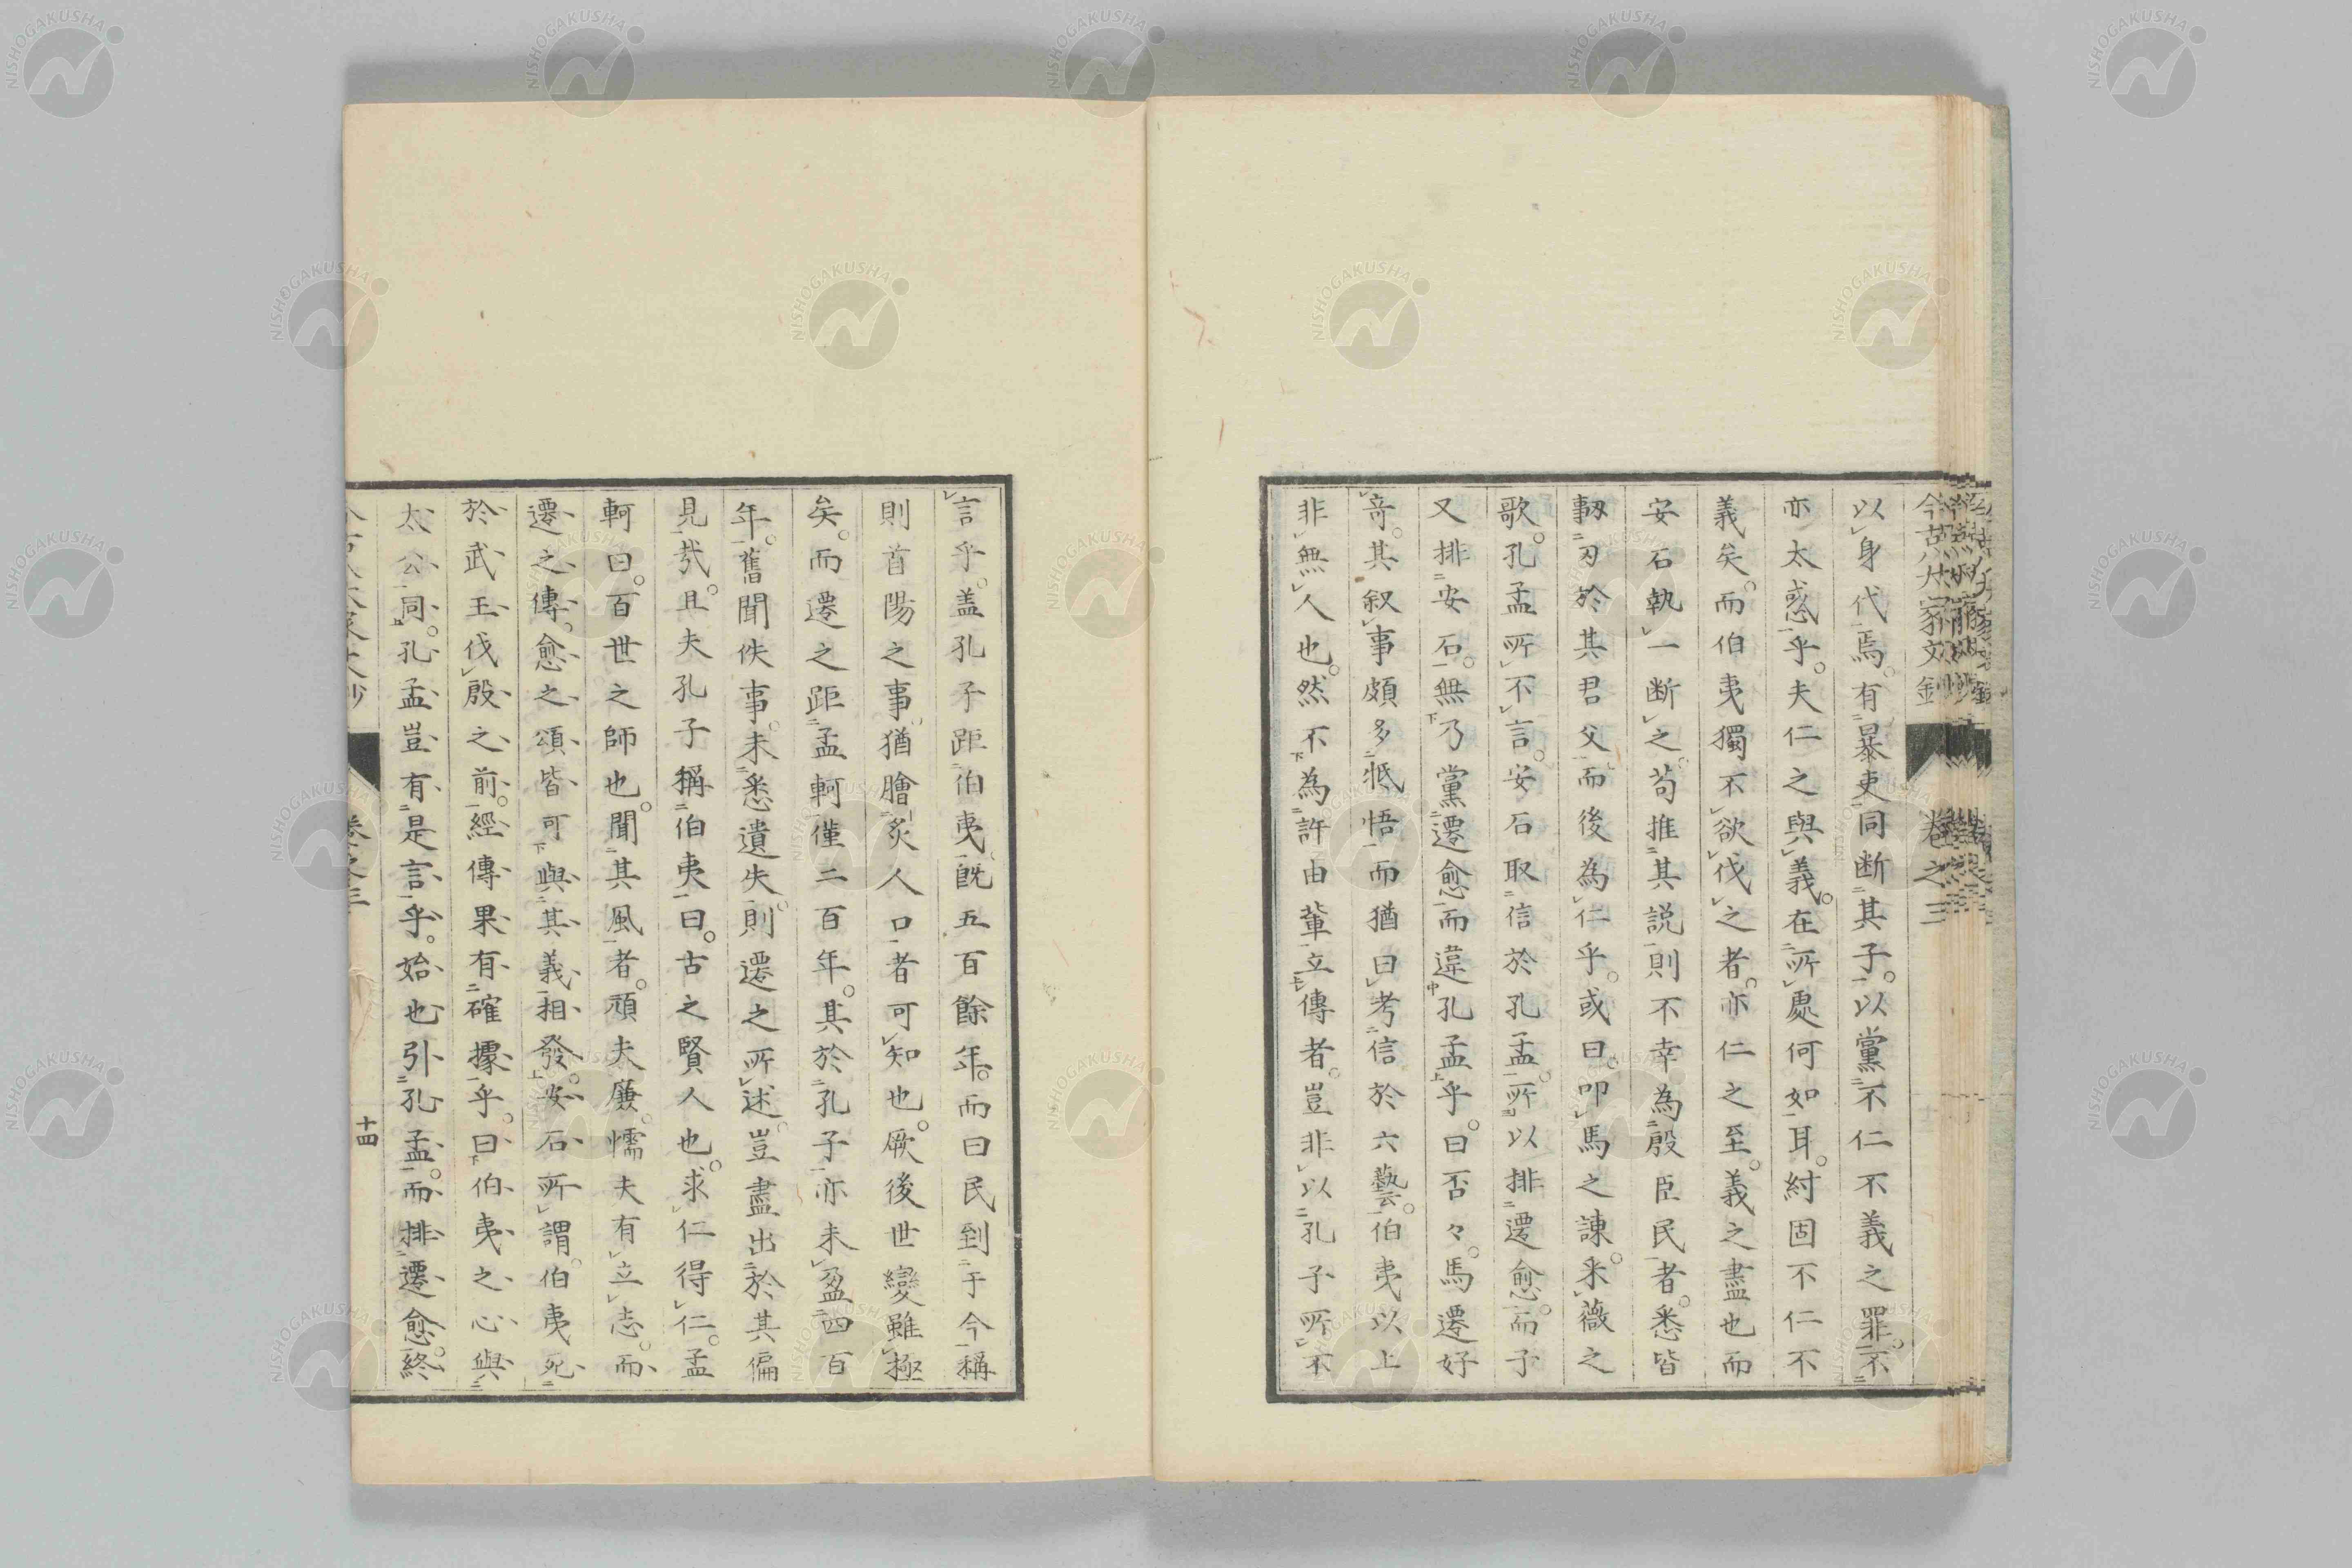 今古八大家文鈔 卷之三
以身代焉。有暴吏同断其子。以黨不仁不義之罪。不
亦太惑乎。夫仁之與義。在所處何如耳。紂固不仁不
義矣。而伯夷獨不欲伐之者。亦仁之至。義之盡也而
安石執一断之。苟推其説則不幸為殷臣民者。悉皆
刃於其君父而後為仁乎。或曰。叩馬之諌。采薇之
歌。孔孟所不言。安石取信於孔孟。所以排遷愈。而子
又排安石。無乃黨遷愈而違孔孟乎。曰否々。馬遷好
竒。其叙事頗多牴悟而猶曰考信於六藝。伯夷以上
非無人也。然不為許由輩立傳者。豈非以孔子所不
言乎。盖孔子距伯夷。既五百餘年。而曰民到于今稱
則首陽之事。猶膾炙人口者可知也。厥後世變雖極
矣。而遷之距孟軻僅二百年。其於孔子亦未盈四百
年。舊聞佚事。未悉遺失。則遷之所述豈盡出於其偏
見㢤。且夫孔子稱伯夷曰。古之賢人也。求仁得仁。孟
軻曰。百世之師也。聞其風者。頑夫廉。懦夫有立志。而
遷之傳。愈之頌皆可與其義相發。安石所謂。伯夷死
於武王伐殷之前。經傳果有確據乎。曰伯夷之心與
太公同。孔孟豈有是言乎。始也引孔孟。而排遷愈。終
卷之三 十四